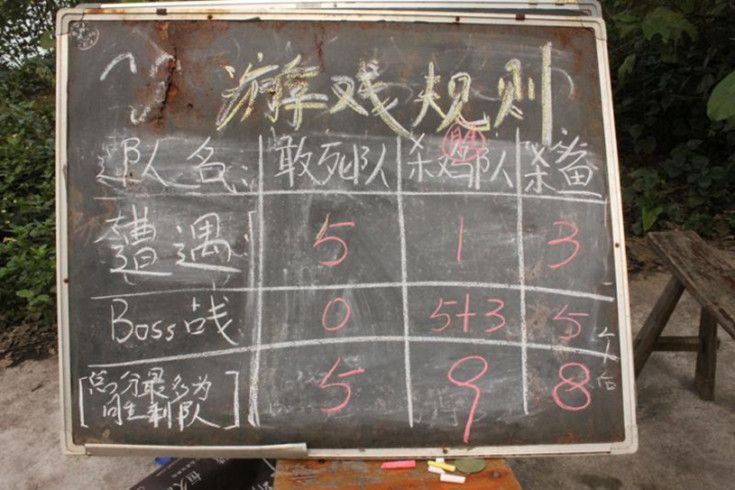 游戏规则
队名: 敢死队 杀鸡队 杀
遭遇 5 1 3
Boss战 0 5+3 5
[总分最多为 5 9 8
队]